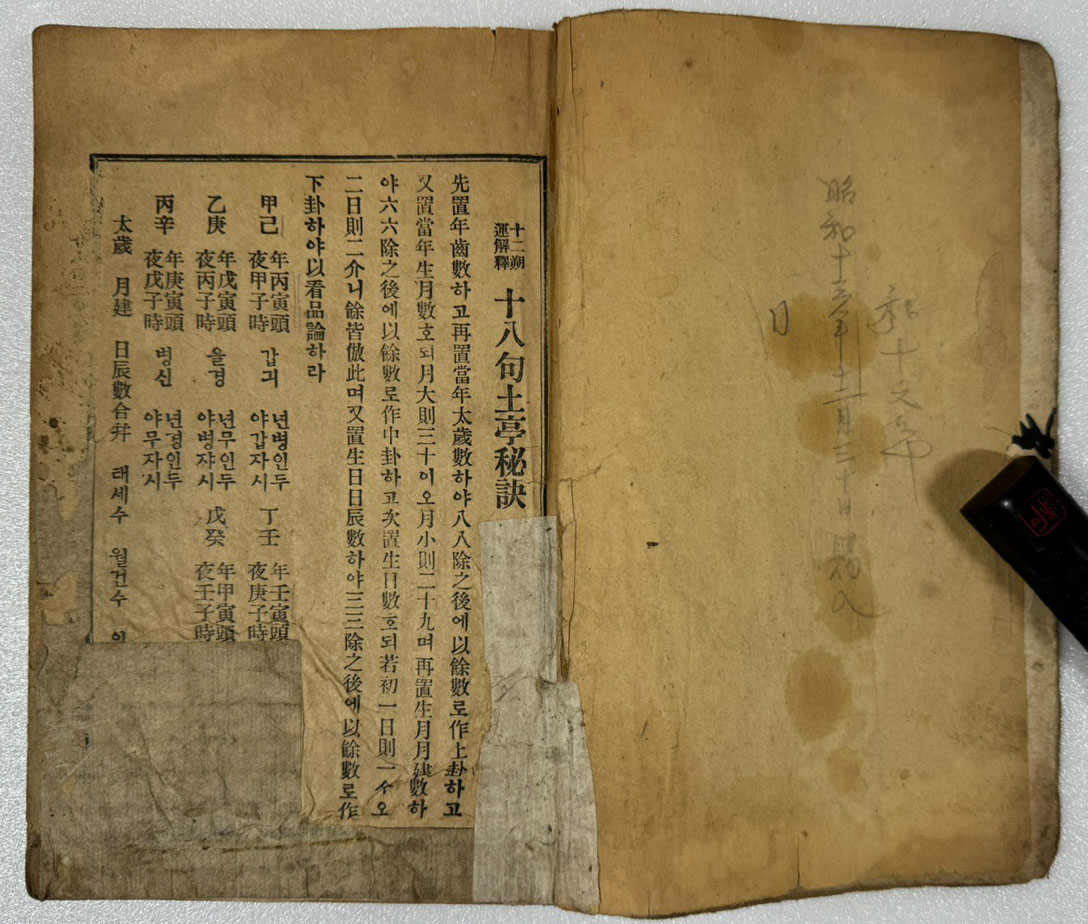 昭和十三年十二月三十日
日
十二朔
運解釋
十八句土亭秘訣
先置年齒數하고再置當年太歲數하야八八除之後에以餘數로作上卦하고
又置當年生月數호되月大則三十이오月小則二十九며再置生月月建數하
야六六除之後에以餘數로作中卦하고次置生日數호되若初一日則一수오
二日則二介니餘皆倣此며又置生日日辰數하야三三除之後에以餘數로作
下卦하야以看品論하라
甲己 年丙寅頭 夜甲子時 갑긔 년병인두 야갑자시 丁壬 年壬寅頭 夜庚子時
乙庚 年戊寅頭 夜丙子時 을경 년무인두 야병쟈시 戊癸 年甲寅頭 夜壬子時
丙辛 年庚寅頭 夜戊子時 병신 년경인두 야무자시
太歲 月建 日辰數合幷 래세수 월건수